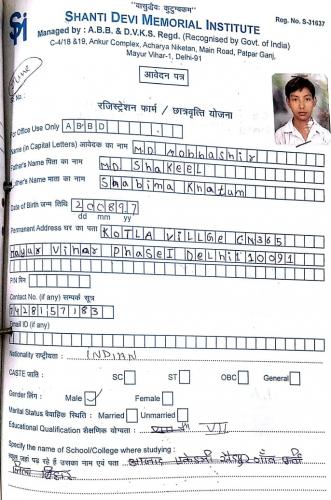 "वासुदेवः कुटुम्बकम"
SHANTI DEVI MEMORIAL INSTITUTE
Reg. No. S-31637
Managed by : A.B.B. & D.V.K.S. Regd. (Recognised by Govt. of India)
C-4/18 &19, Ankur Complex, Acharya Niketan, Main Road, Patpar Ganj,
Mayur Vihar-1, Delhi-91
आवेदन पत्र
No :
रजिस्ट्रेशन फार्म / छात्रवृत्ति योजना
For Office Use Only ABBD
Name (in Capital Letters) आवेदक का नाम MD Mobbashir
Father's Name पिता का नाम MD ShaKeeL
Father's Name माता का नाम Shabima Khatum
Date of Birth जन्म तिथि 200897
dd mm yy
Permanent Address घर का पता KOTLA ViLLGE CN365
Mayur Vihar PhaSE I Delhi 110091
PIN पिन
Contact No. (if any) सम्पर्क सूत्र
7428157183
Email ID (if any)
Nationality राष्ट्रीयता : INDIAN
CASTE जाति : SC ST OBC General
Gender लिंग : Male ✓ Female
Marital Status वैवाहिक स्थिति : Married Unmarried
Educational Qualification शैक्षणिक योग्यता : VII
Specify the name of School/College where studying :
जहां पढ़ रहे हैं उसका नाम एवं पता